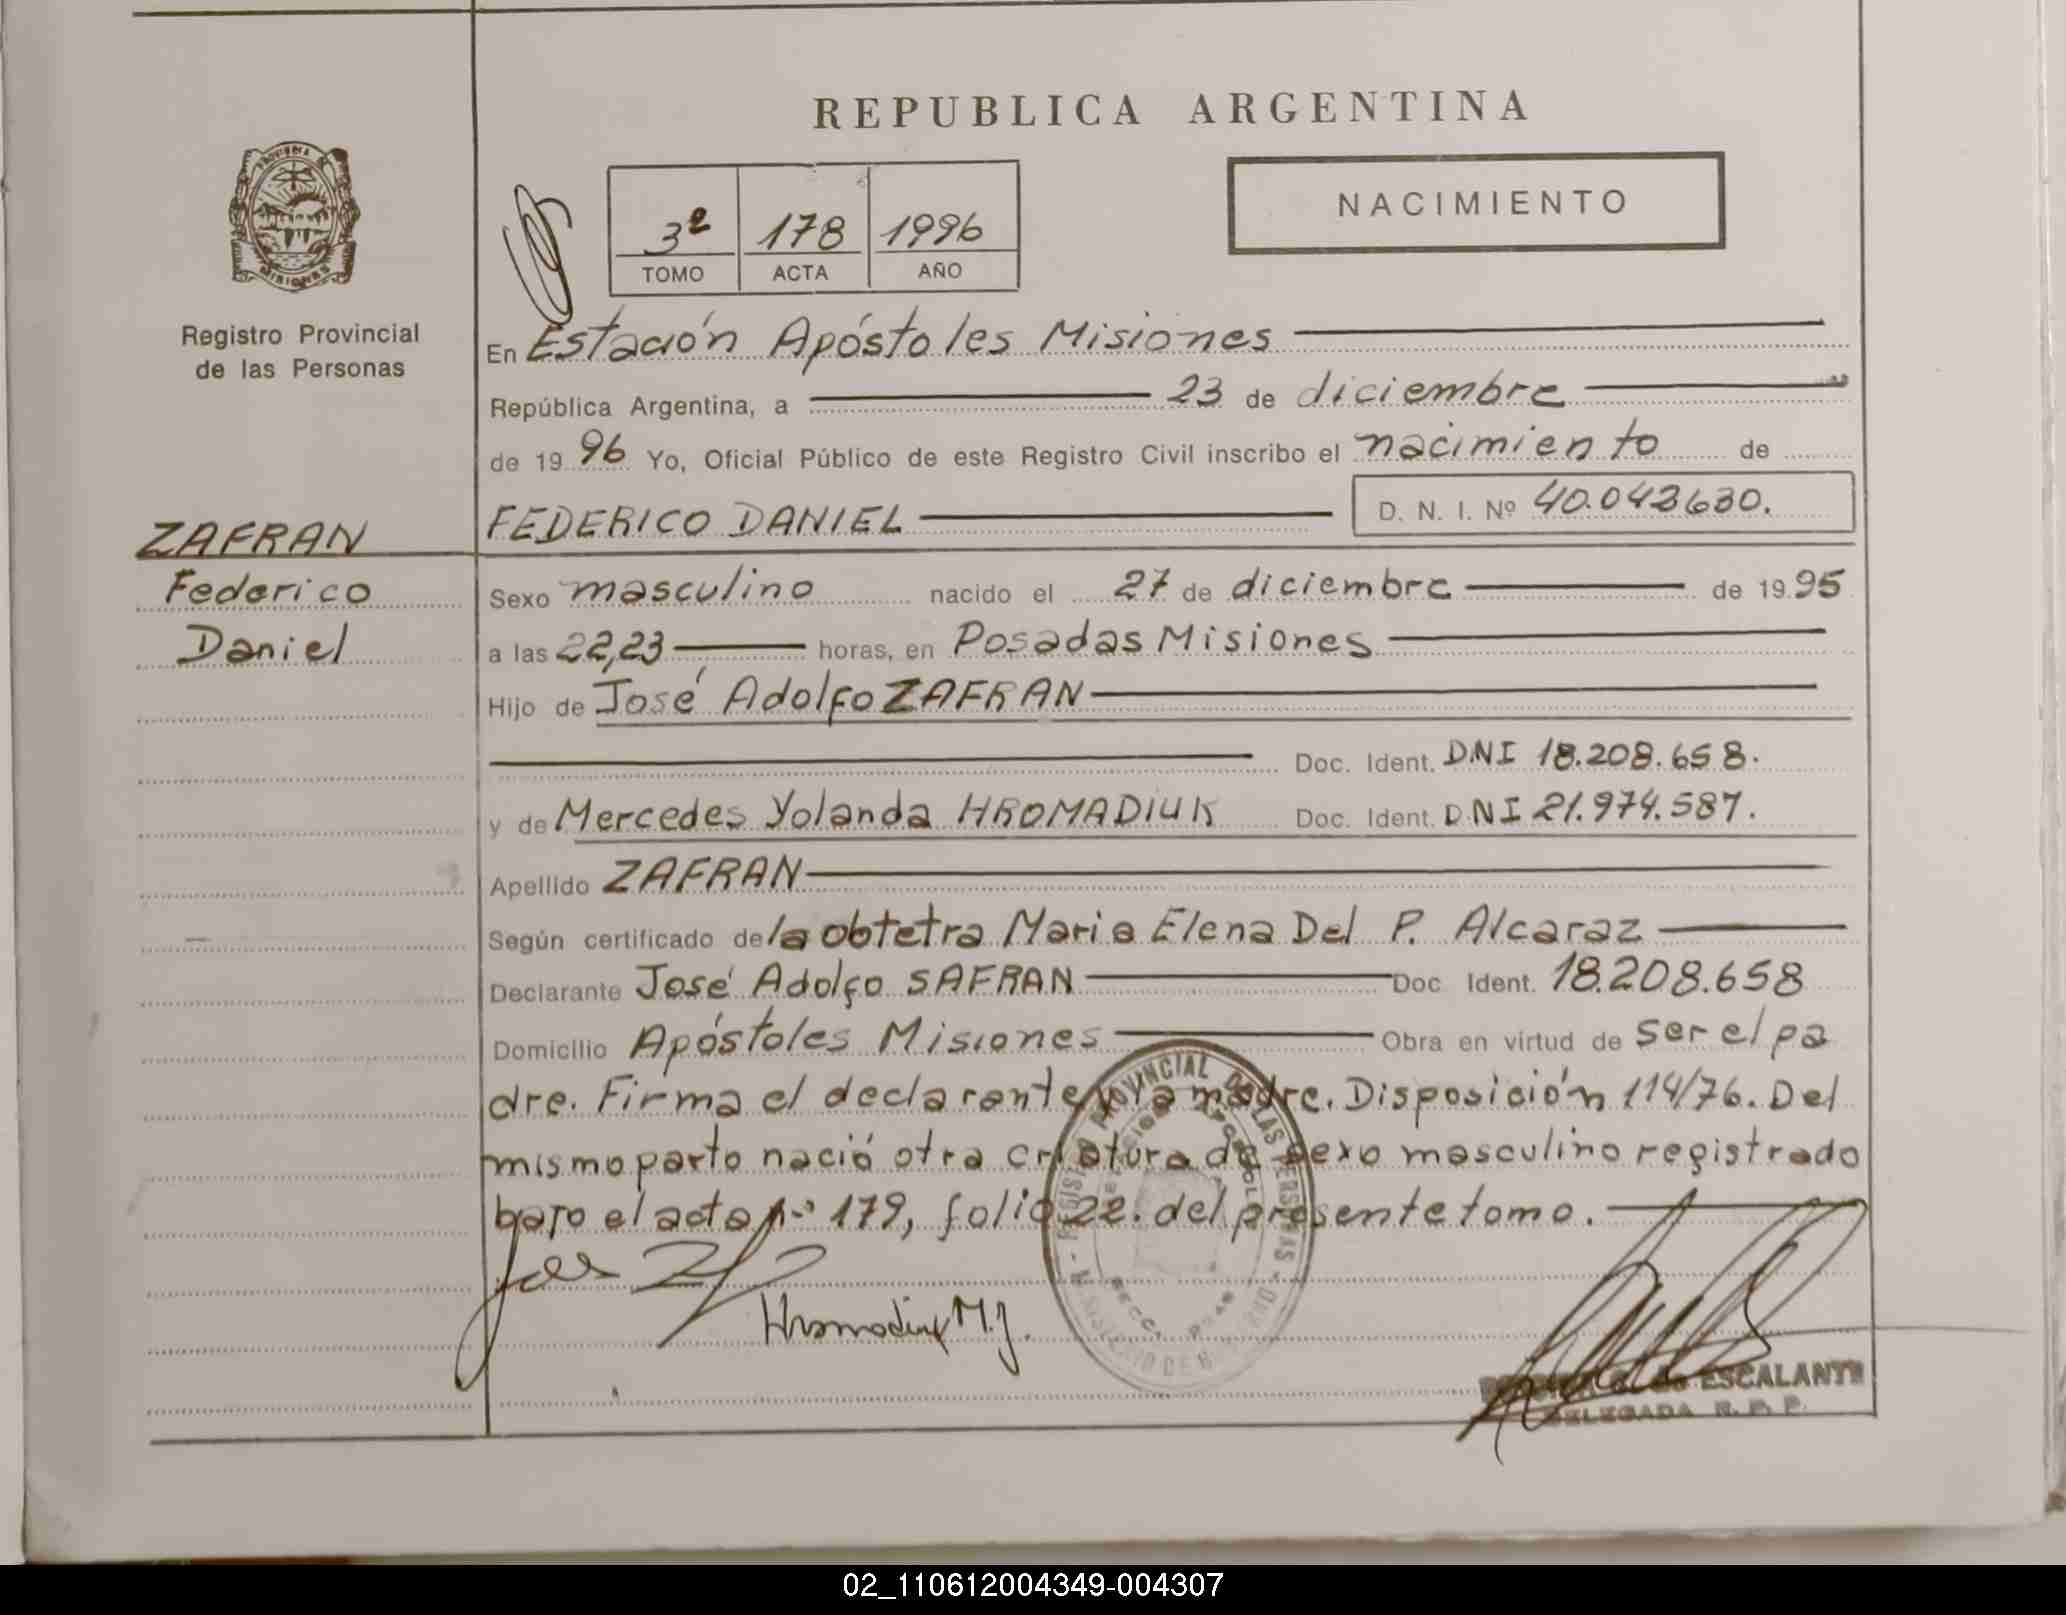 REPUBLICA ARGENTINA
PROVINCIA DE
MISIONES
Registro Provincial
de las Personas
3º 178 1996
TOMO ACTA AÑO
NACIMIENTO
En Estación Apóstoles Misiones
República Argentina, a 23 de diciembre
de 1996 Yo, Oficial Público de este Registro Civil inscribo el nacimiento de
FEDERICO DANIEL D. N. I. Nº 40.043630.
ZAFRAN
Federico
Daniel
Sexo masculino nacido el 27 de diciembre de 1995
a las 22,23 horas, en Posadas Misiones
Hijo de José Adolfo ZAFRAN
Doc. Ident. DNI 18.208.658.
y de Mercedes Yolanda HROMADIUK Doc. Ident. DNI 21.974.587.
Apellido ZAFRAN
Según certificado de la obtetra Maria Elena Del P. Alcaraz
Declarante José Adolfo SAFRAN Doc. Ident. 18.208.658
Domicilio Apóstoles Misiones Obra en virtud de ser el pa
dre. Firma el declarante y la madre. Disposición 114/76. Del
mismo parto nació otra criatura de sexo masculino registrado
bajo el acta nº 179, folio 22. del presente tomo.
Hromadiuk M.Y.
REGISTRO PROVINCIAL DE LAS PERSONAS
ESCALANTE
DELEGADA R. P. P.
02_110612004349-004307